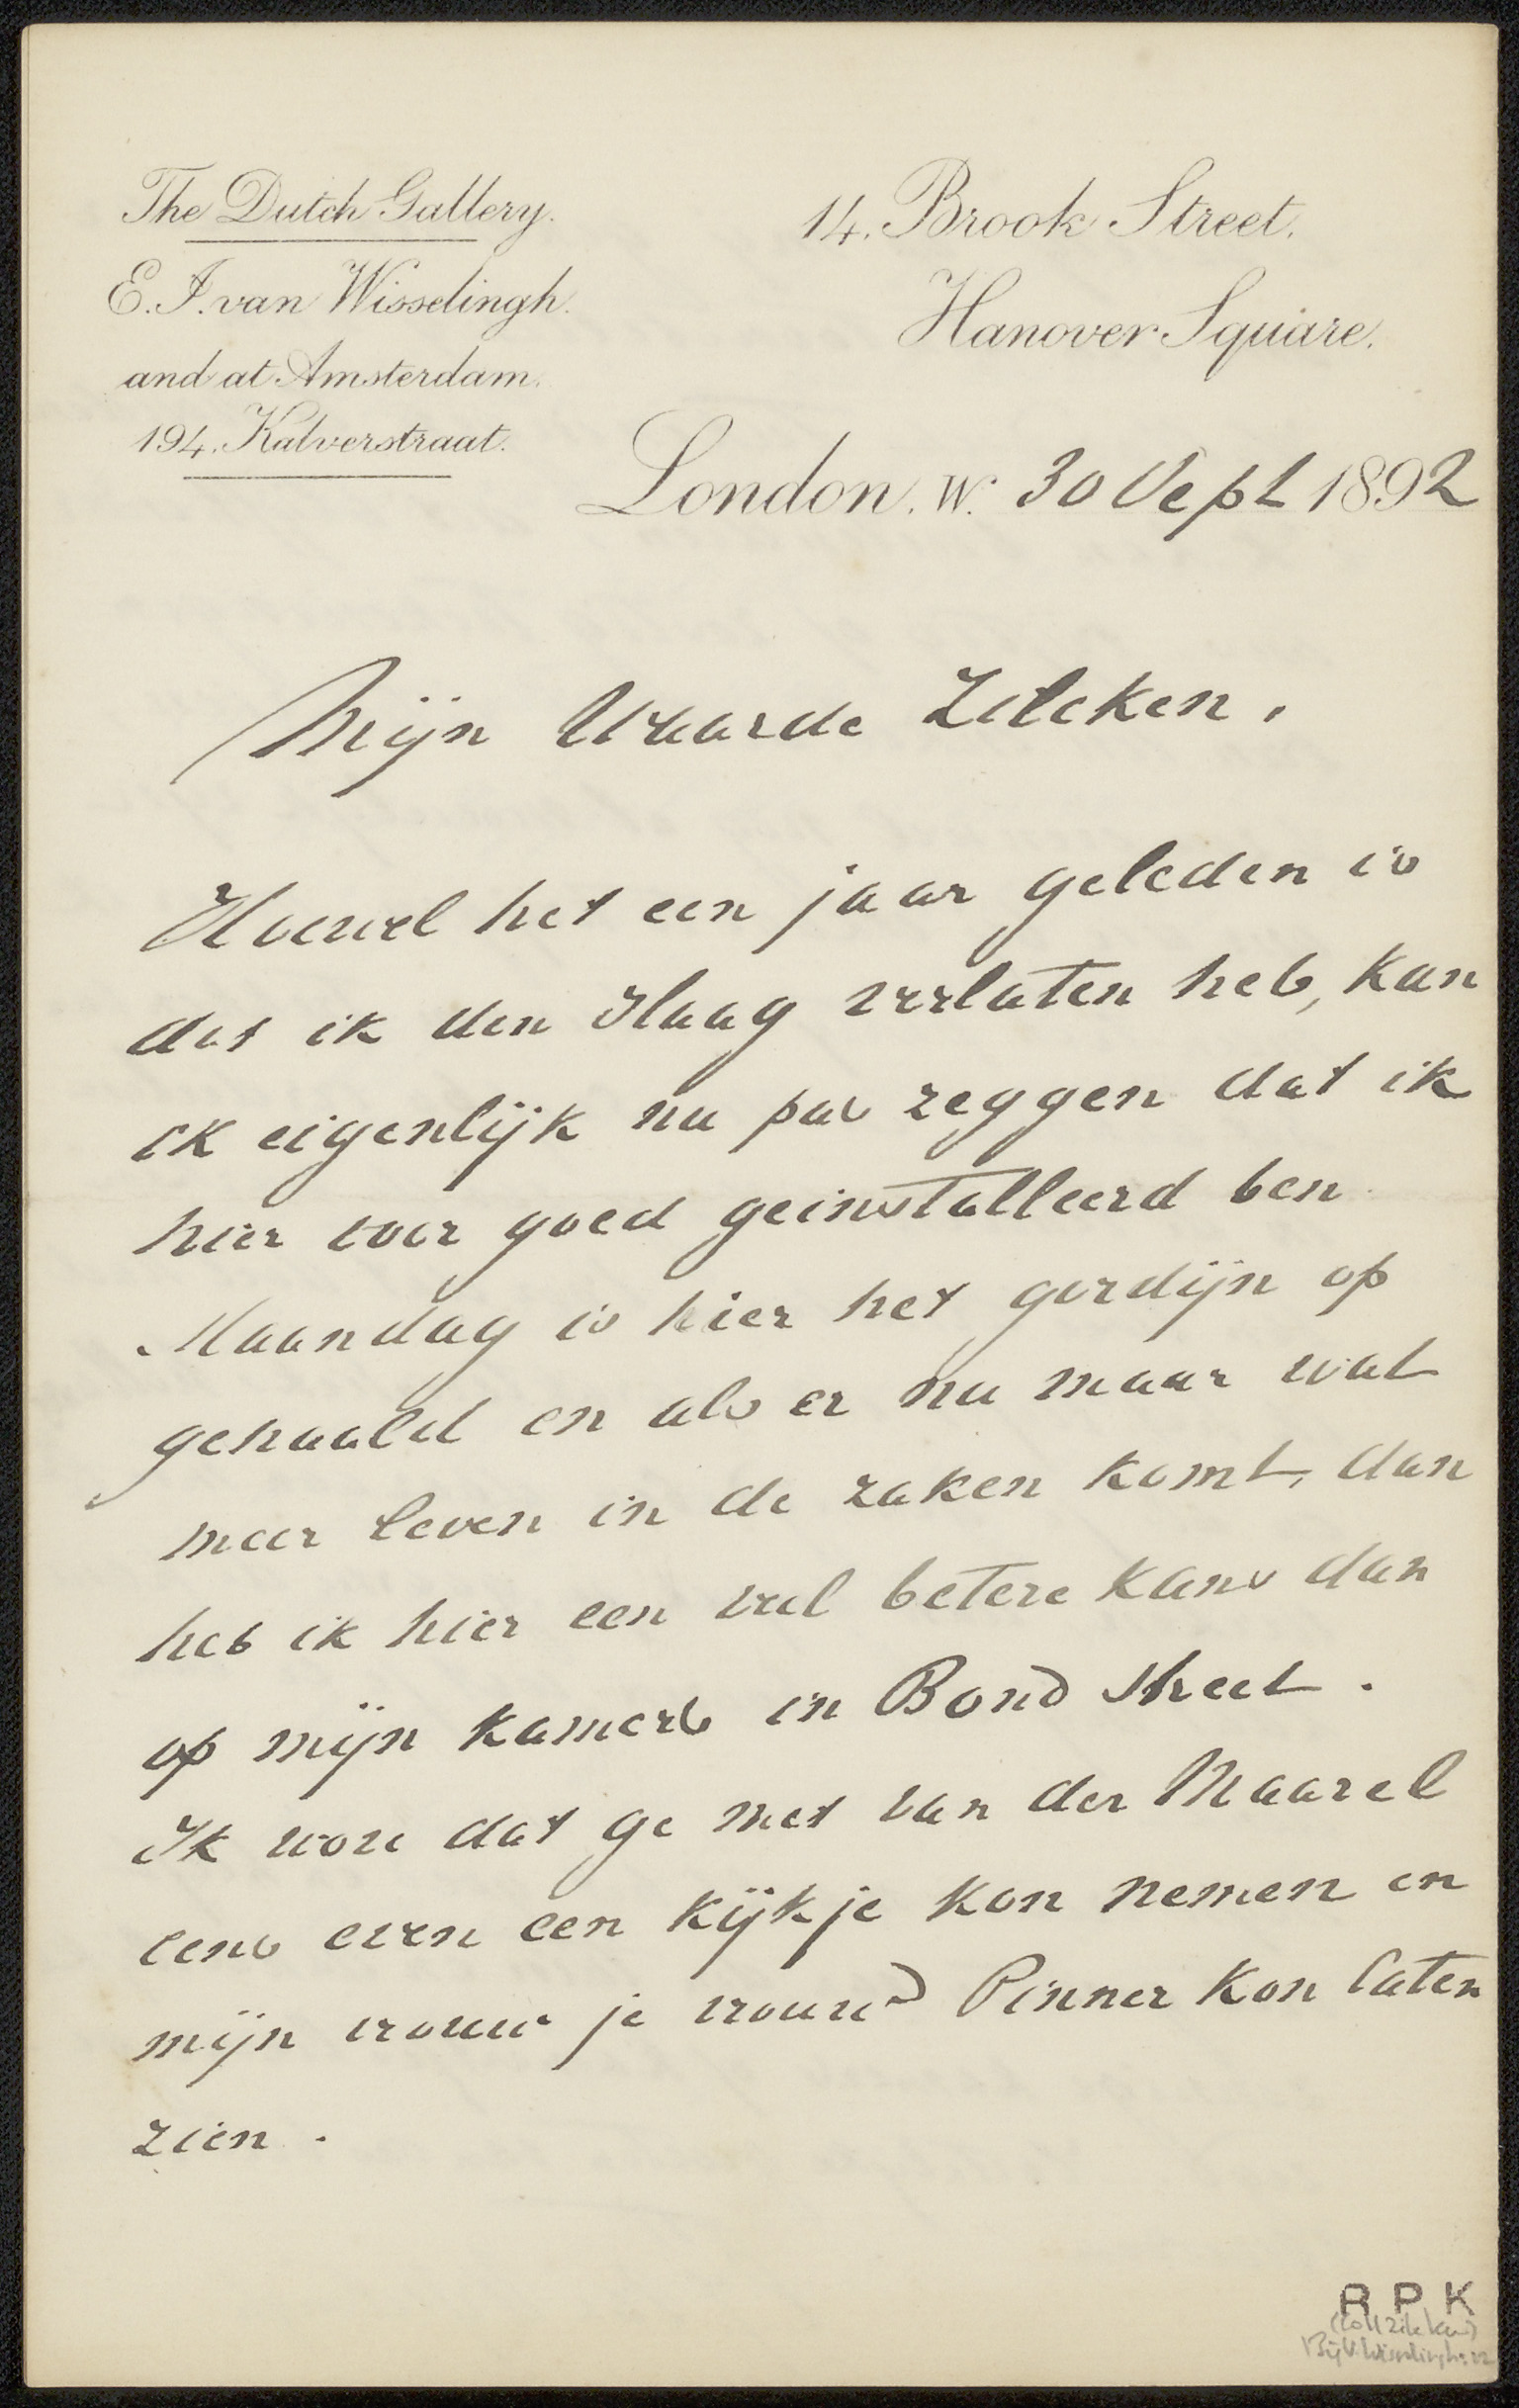 The Dutch Gallery.
E. J. van Wisselingh.
and at Amsterdam.
194. Kalverstraat.
14. Brook Street.
Hanover Square.
London. W. 30 Sept 1892
Mijn Waarde Zilcken,
Hoewel het een jaar geleden is
dat ik den Haag verlaten heb, kan
ik eigenlijk nu pas zeggen dat ik
hier voor goed geinstalleerd ben
Maandag is hier het gordijn op
gehaald en als er nu maar wat
meer leven in de zaken komt, dan
heb ik hier een veel betere kans dan
op mijn kamers in Bond Street.
Ik wou dat ge met van der Maarel
eens even een kijkje kon nemen en
mijn vrouw je vrouw Pinner kon laten
zien.
R P K
(Coll Zilcken)